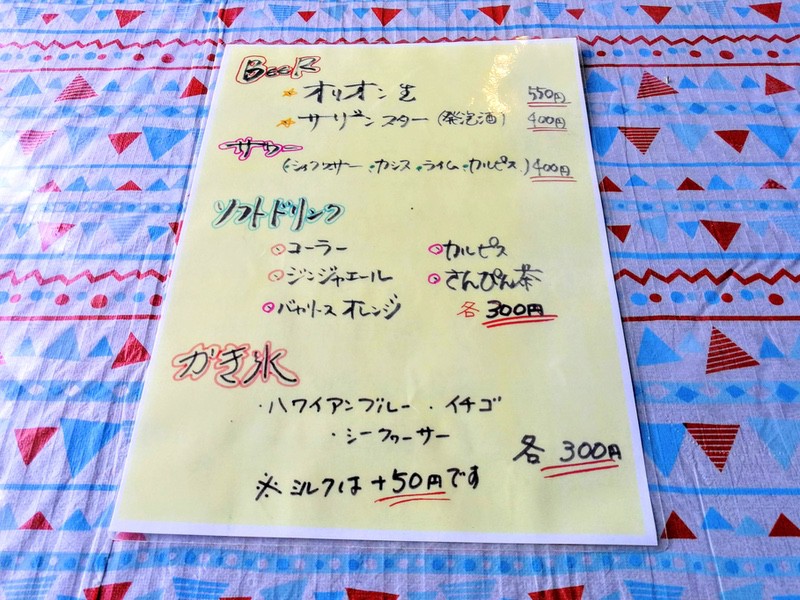 BeeR
★ オリオン生 550円
★ サザンスター (発泡酒) 400円
サワー
(シィクワサー・カシス・ライム・カルピス) 400円
ソフトドリンク
コーラー カルピス
ジンジャエール さんぴん茶
バャリース オレンジ 各 300円
かき氷
・ハワイアンブルー ・イチゴ
・シークヮーサー
各 300円
※ ミルクは +50円です